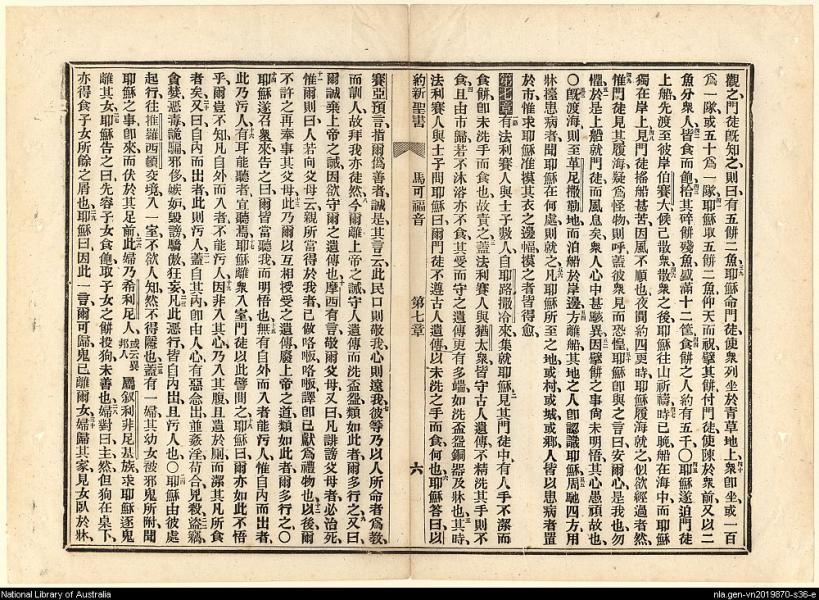 觀之門徒旣知之則曰有五餅二魚耶穌命門徒使衆列坐於青草地上衆卽坐或一百
爲一隊或五十爲一隊耶穌取五餅二魚仰天而祝擘其餅付門徒使陳於衆前又以二
魚分衆人皆食而飽拾其碎餅殘魚盛滿十二筐食餅之人約有五千〇耶穌遂迫門徒
上船先渡至彼岸伯賽大候己散衆散衆之後耶穌往山祈禱時已晩船在海中而耶穌
獨在岸上見門徒搖船甚苦因風不順也夜間約四更時耶穌履海就之似欲經過者然
惟門徒見其履海疑爲怪物則呼蓋彼衆見而恐惶耶穌卽與之言曰安爾心是我也勿
懼於是上船就門徒而風息矣衆人心中甚駭異因擘餅之事尙未明悟其心愚頑故也
〇旣渡海則至革尼撒勒地而泊船於岸邊方離船其地之人卽認識耶穌周馳四方用
牀擡患病者聞耶穌在何處則就之凡耶穌所至之地或村或城或鄉人皆以患病者置
於市惟求耶穌准摸其衣之邊幅摸之者皆得愈
第七章有法利賽人與士子數人自耶路撒冷來集就耶穌見其門徒中有人手不潔而
食餅卽未洗手而食也故責之蓋法利賽人與猶太衆皆守古人遺傳不精洗其手則不
食且由市歸若不沐浴亦不食其受而守之遺傳更有多端如洗盃盌銅器及牀也其時
法利賽人與士子問耶穌曰爾門徒不遵古人遺傳以未洗之手而食何也耶穌答曰以
約新聖書 馬可福音 第七章 六
賽亞預言指爾僞善者誠是其言云此民口則敬我心則遠我彼等乃以人所命者爲教
而訓人故拜我亦徒然今爾離上帝之誡守人遺傳而洗盃盌類如此者爾多行之又曰
爾誠棄上帝之誡因欲守爾之遺傳也摩西有言敬爾父母又曰凡誹謗父母者必治死
惟爾則曰人若向父母云親所當得於我者已做咯㗑咯㗑譯卽已獻爲禮物也以後爾
不許之再奉事其父母此乃爾以互相授受之遺傳廢上帝之道類如此者爾多行之〇
耶穌遂召衆來告之曰爾皆當聽我而明悟也無有自外而入者能污人惟自內而出者
此乃污人有耳能聽者宜聽焉耶穌離衆入室門徒以此譬問之耶穌曰爾亦如此不悟
乎爾豈不知凡自外而入者不能污人因非入其心乃入其腹且遺於厠而潔其凡所食
者矣又曰自內而出者此則污人蓋自其內卽由人心有惡念出並姦淫苟合兇殺盜竊
貪婪惡毒詭騙邪侈嫉妒毀謗驕傲狂妄凡此惡行皆自內出且污人也〇耶穌由彼處
起行往推羅西頓交境入一室不欲人知然不得隱也蓋有一婦其幼女被邪鬼所附聞
耶穌之事卽來而伏於其足前此婦乃希利尼人或云異邦人屬叙利非尼基族求耶穌逐鬼
離其女耶穌告之曰先容子女食飽取子女之餅投狗未善也婦對曰主然但狗在桌下
亦得食子女所餘之屑也耶穌曰因此一言爾可歸鬼已離爾女婦歸其家見女臥於牀
National Library of Australia
nla.gen-vn2019870-s36-e